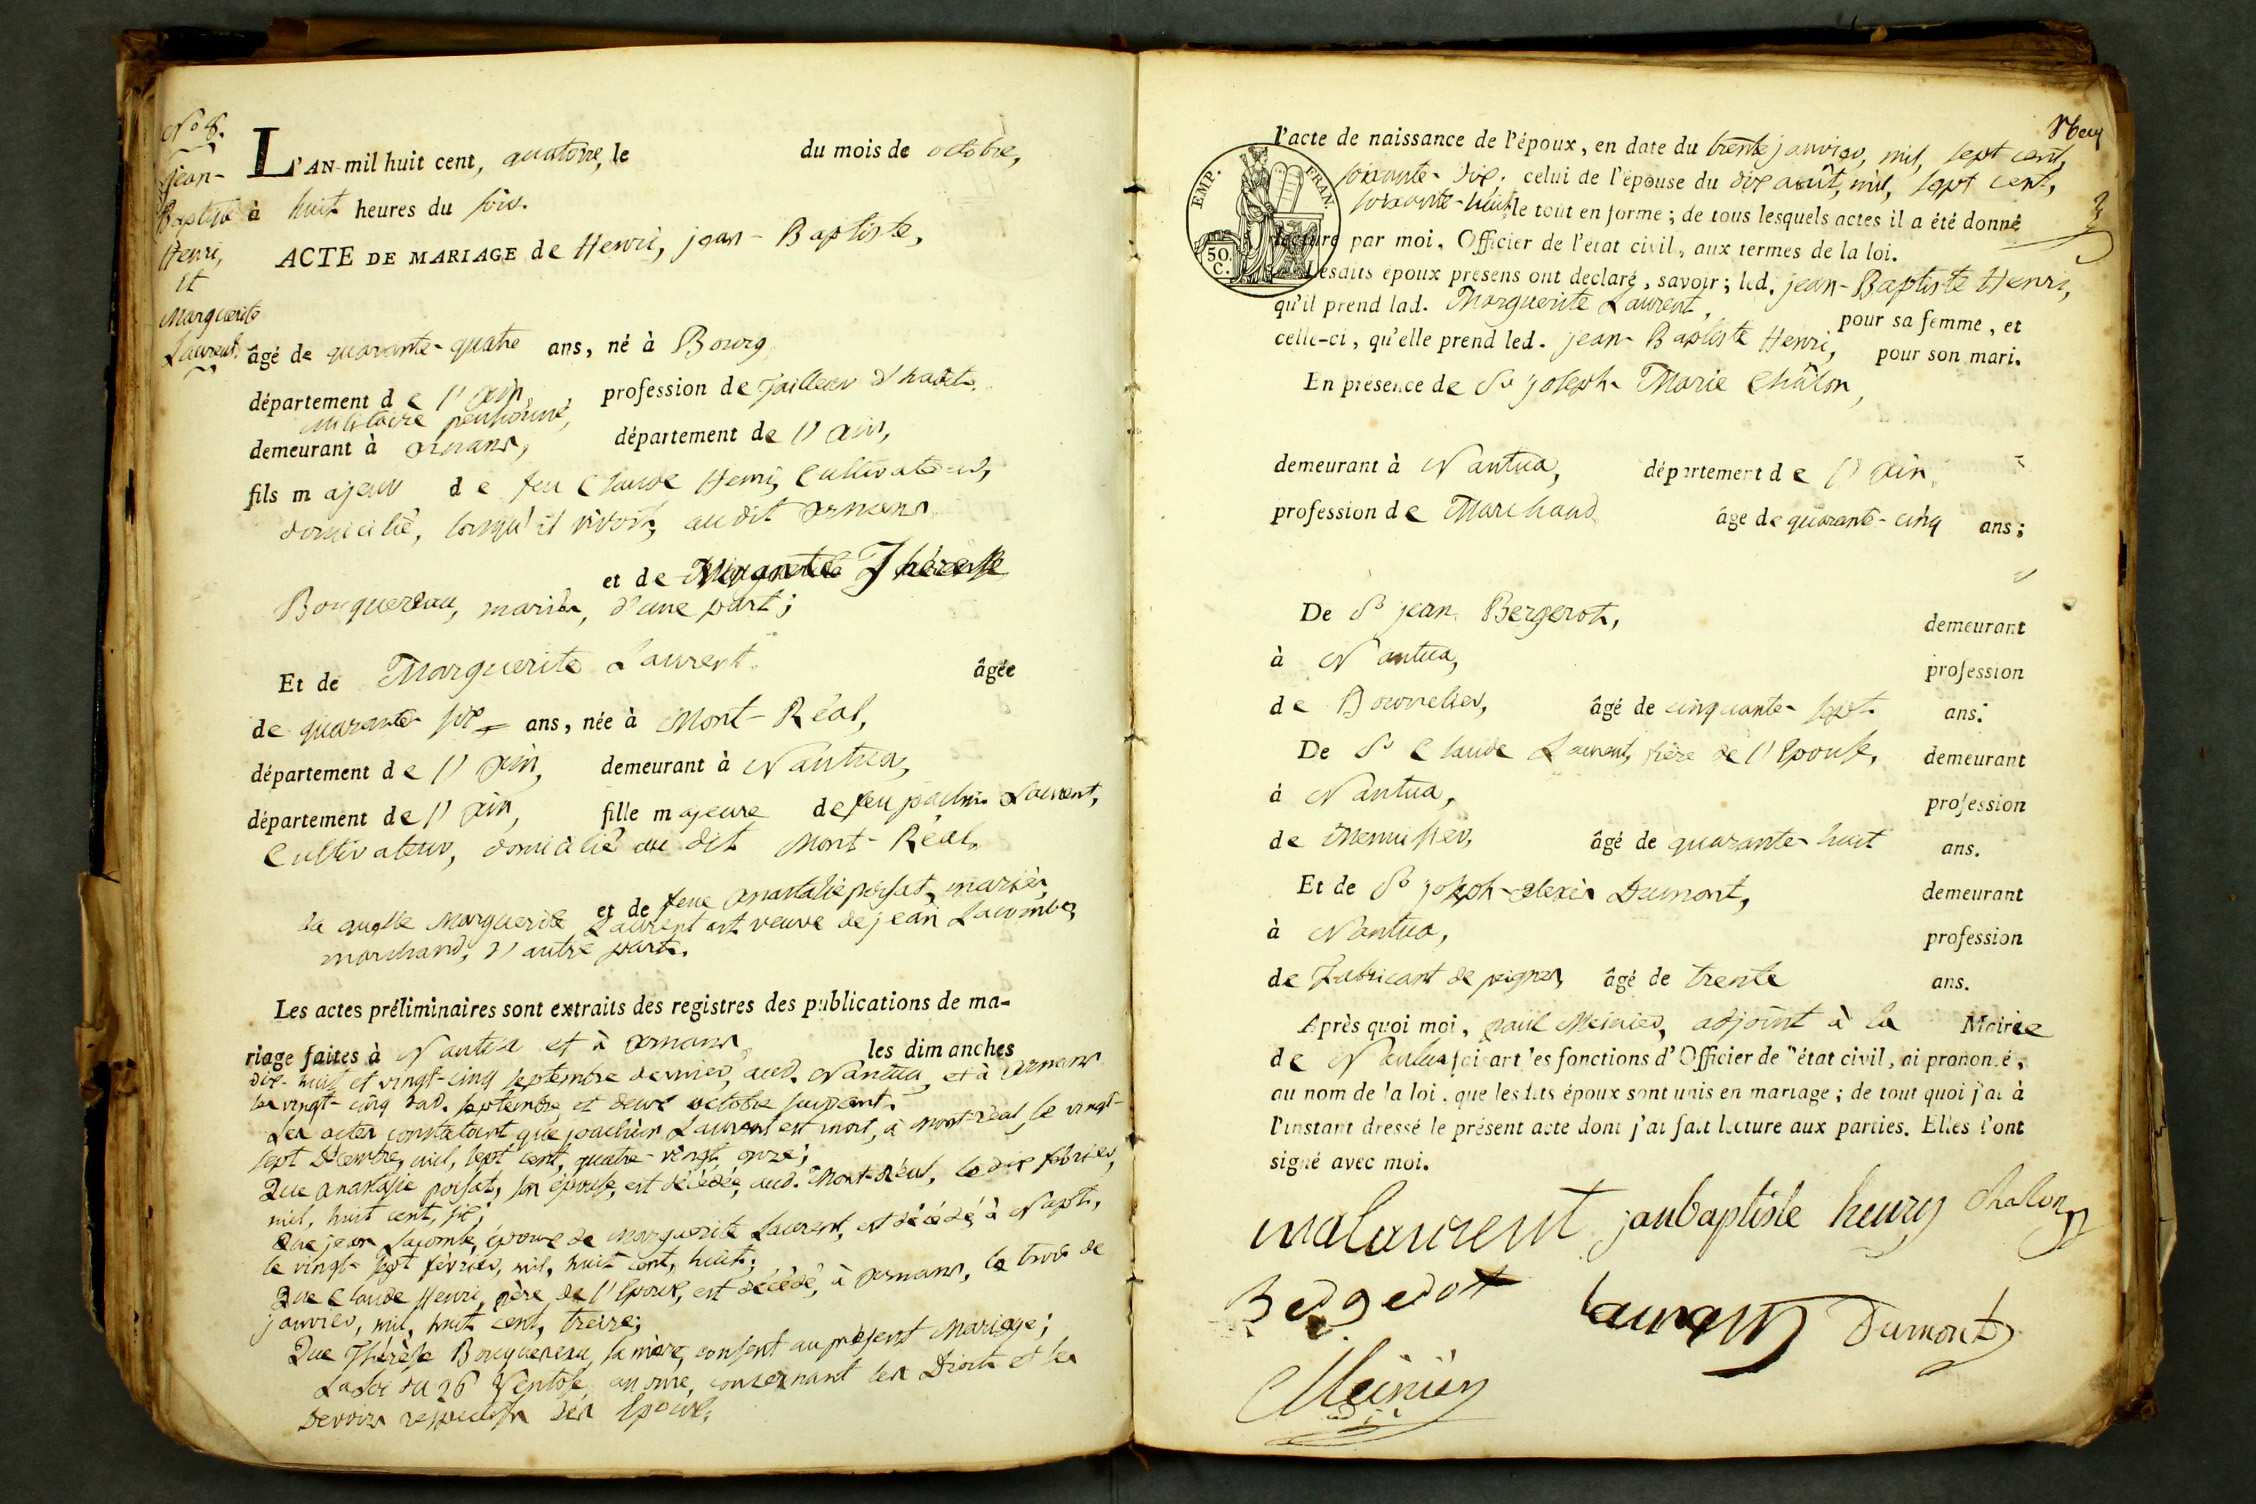 No 8.
jean-
Baptiste
Henri,
Et
Marguerite
Laurent.
L'AN mil huit cent, quatorze, le du mois de octobre,
à huit heures du soir.
ACTE DE MARIAGE de Henri, jean-Baptiste,
âgé de quarante-quatre ans, né à Bourg
département de l'ain, profession de Tailleur d'habits,
militaire pensionné,
demeurant à arnans, département de l'ain,
fils majeur de feu Claude Henri, Cultivateur,
domicilié, lorsqu'il vivoit, audit arnans
et de Thérèse
Bouquereau, mariés, d'une part;
Et de Marguerite Laurent. âgée
de quarante-six ans, née à Mont-Réal,
département de l'ain, demeurant à Nantua,
département de l'ain, fille majeure de feu joachim Laurent,
Cultivateur, domicilié au dit Mont-Réal,
et de feue anastasie poisat, mariés,
la quelle Marguerite Laurent est veuve de jean Lacombe,
marchand, d'autre part.
Les actes préliminaires sont extraits des registres des publications de ma-
riage faites à Nantua et à arnans, les dimanches
dix-huit et vingt-cinq septembre dernier, aud. Nantua, et à arnans
les vingt-cinq dud. septembre et deux octobre suivant.
Les actes constatant que joachim Laurent est mort, à Mont-réal, le vingt-
sept Décembre, mil, sept cent, quatre-vingt onze;
Que anastasie poisat, son épouse, est décédée, aud. Mont-Réal, le dix février,
mil, huit cent, six;
Que jean Lacombe, époux de Marguerite Laurent, est décédé, à
le vingt-sept février, mil, huit cent, huit;
Que Claude Henri, père de l'Epoux, est décédé, à arnans, le trois de
janvier, mil, huit cent, treize;
Que Thérèse Bouquereau, sa mère, consent au présent Mariage;
La loi du 26 Ventose, an onze, concernant les Droits et les
Devoirs respectifs des Epoux;
EMP. FRAN.
50.
C.
l'acte de naissance de l'époux, en date du trente janvier, mil, sept cent,
soixante-dix; celui de l'épouse du dix août, mil, sept cent,
soixante-huit, le tout en forme; de tous lesquels actes il a été donné
lecture par moi, Officier de l'état civil, aux termes de la loi.
Lesdits époux présens ont déclaré, savoir; led. jean-Baptiste Henri,
qu'il prend lad. Marguerite Laurent, pour sa femme, et
celle-ci, qu'elle prend led. jean-Baptiste Henri, pour son mari.
En présence de Sr joseph-Marie Châlon,
demeurant à Nantua, département de l'ain,
profession de Marchand âgé de quarante-cinq ans;
De Sr jean Bergerot, demeurant
à Nantua, profession
de Bourrelier, âgé de cinquante-sept ans.
De Sr Claude Laurent, frère de l'Epouse, demeurant
à Nantua, profession
de Menuisier, âgé de quarante-huit ans.
Et de Sr joseph-alexis Dumont, demeurant
à Nantua, profession
de Fabricant de peignes, âgé de trente ans.
Après quoi moi, paul Meinier, adjoint à la Mairie
de Nantua, faisant les fonctions d'Officier de l'état civil, ai prononcé,
au nom de la loi, que lesdits époux sont unis en mariage; de tout quoi j'ai à
l'instant dressé le présent acte dont j'ai fait lecture aux parties. Elles l'ont
signé avec moi.
malaurent janbaptiste henry Chalon
Bergerot Laurent Dumont
Meinier
adj.